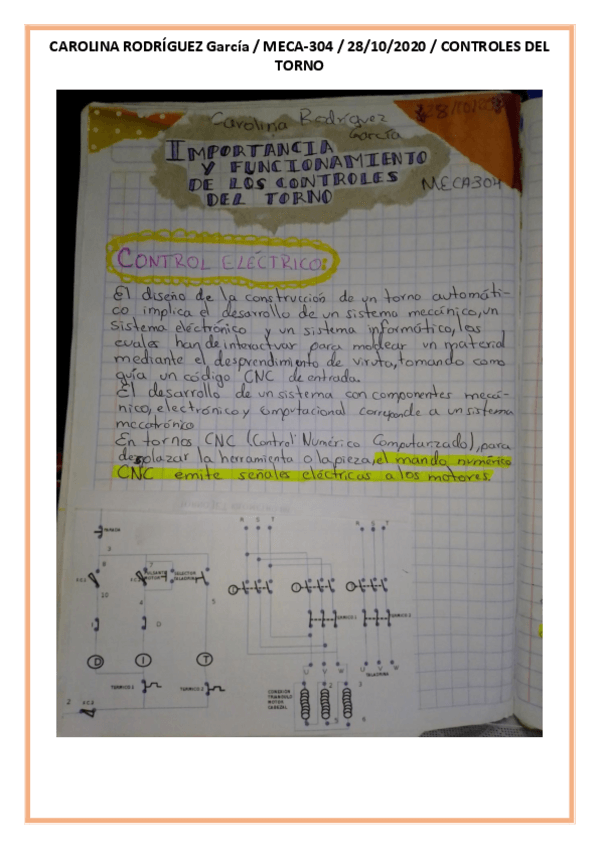 CAROLINA RODRÍGUEZ García / MECA-304 / 28/10/2020 / CONTROLES DEL
TORNO
Carolina Rodríguez
García
IMPORTANCIA
Y FUNCIONAMIENTO
DE LOS CONTROLES
DEL TORNO
MECA304
CONTROL ELÉCTRICO:
El diseño de la construcción de un torno automáti-
co implica el desarrollo de un sistema mecánico, un
sistema electrónico y un sistema informático, los
cuales han de interactuar para moldear un material
mediante el desprendimiento de viruta, tomando como
guía un código CNC de entrada.
El desarrollo de un sistema con componentes mecá-
nico, electrónico y computacional corresponde a un sistema
mecatrónico
En tornos CNC (Control Numérico Computarizado), para
desplazar la herramienta o la pieza, el mando numérico
CNC emite señales eléctricas a los motores.
R S T
R S T
PARADA
3
8
7
PULSANTE
MOTOR
SELECTOR
TALADRINA
10
4
5
D
D
I
T
TERMICO 1
TERMICO 2
TERMICO 1
TERMICO 2
U V W
U V W
TALADRINA
CONEXION
TRIANGULO
MOTOR
CABEZAL
1
2
3
5
6
2